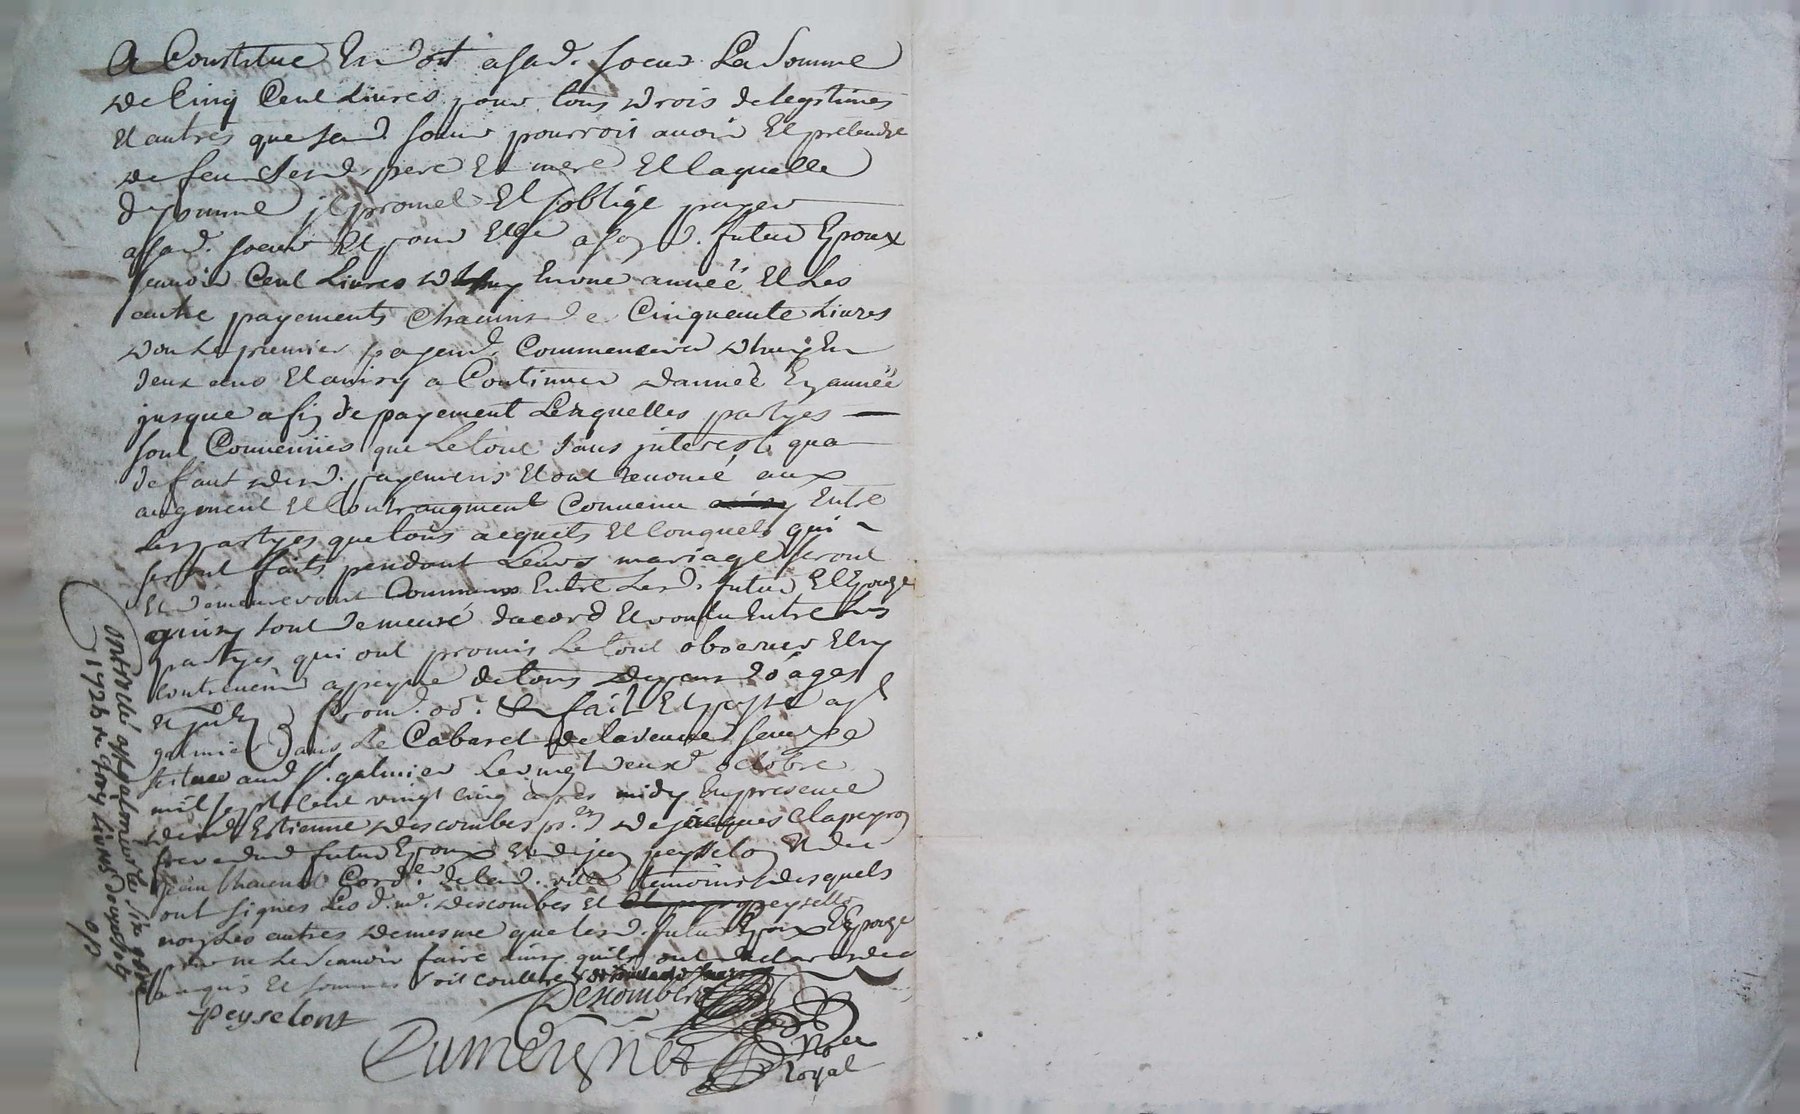 A Constitue En dot a sad. soeur La Somme
de Cinq Cent Livres pour tous drois de legitimes
Et autres que sad. soeur pourroit auoir Et pretendre
de feu Lesd. pere Et mere Et laquelle
d. somme jl promet Et soblige payer
a sad. soeur Et pour Elle a son d. futur Epoux
scauoir Cent Livres En une année Et Les
autre payements Chacuns de Cinquante Livres
dont Le premier payem. Commencera dhuy En
deux ans Et ainsy a Continuer dannéé En annéé
jusque a fin de payement Lesquelles partyes
sont Conuenües que Le tout sans jnterest qua
deffaut desd. payemens Et ont renoncé aux
augment Et Contraugment Conuenu Entre
Les partyes que tous acquets Et Conquets qui
seront faits pendant Leurs mariage seront
Et demeureront Communs Entre Lesd. futur Et Epouze
qainsy tout demeuré dacord Et voulu Entre Les
partyes qui ont promis Le tout obseruer Et ny
Contreuenir a peyne de tous depens
Et prom. ob. fait Et passé a st
galmier dans Le Cabaret de la veuue
scitue aud. st. galmier Le vingt deux octobre
mil sept Cent vingt cinq apres midy En presence
de Estienne descombes de jacques Clapeyron
frere dud. futur Epoux Et de jean peysselon Et de
jean Cord. de lad. ville temoins desquels
ont signes Les d. descombes Et peysselon
non Les autres de mesme que Lesd. futur Epoux Et Epouze
pour ne Le scauoir faire ainsy quils ont declaré de ce
enquis Et sommes soit Controllé
Descombes
Peyselont
Dumeignet
Nore
Royal
Controllé a st galmier le
1725 R. Livres